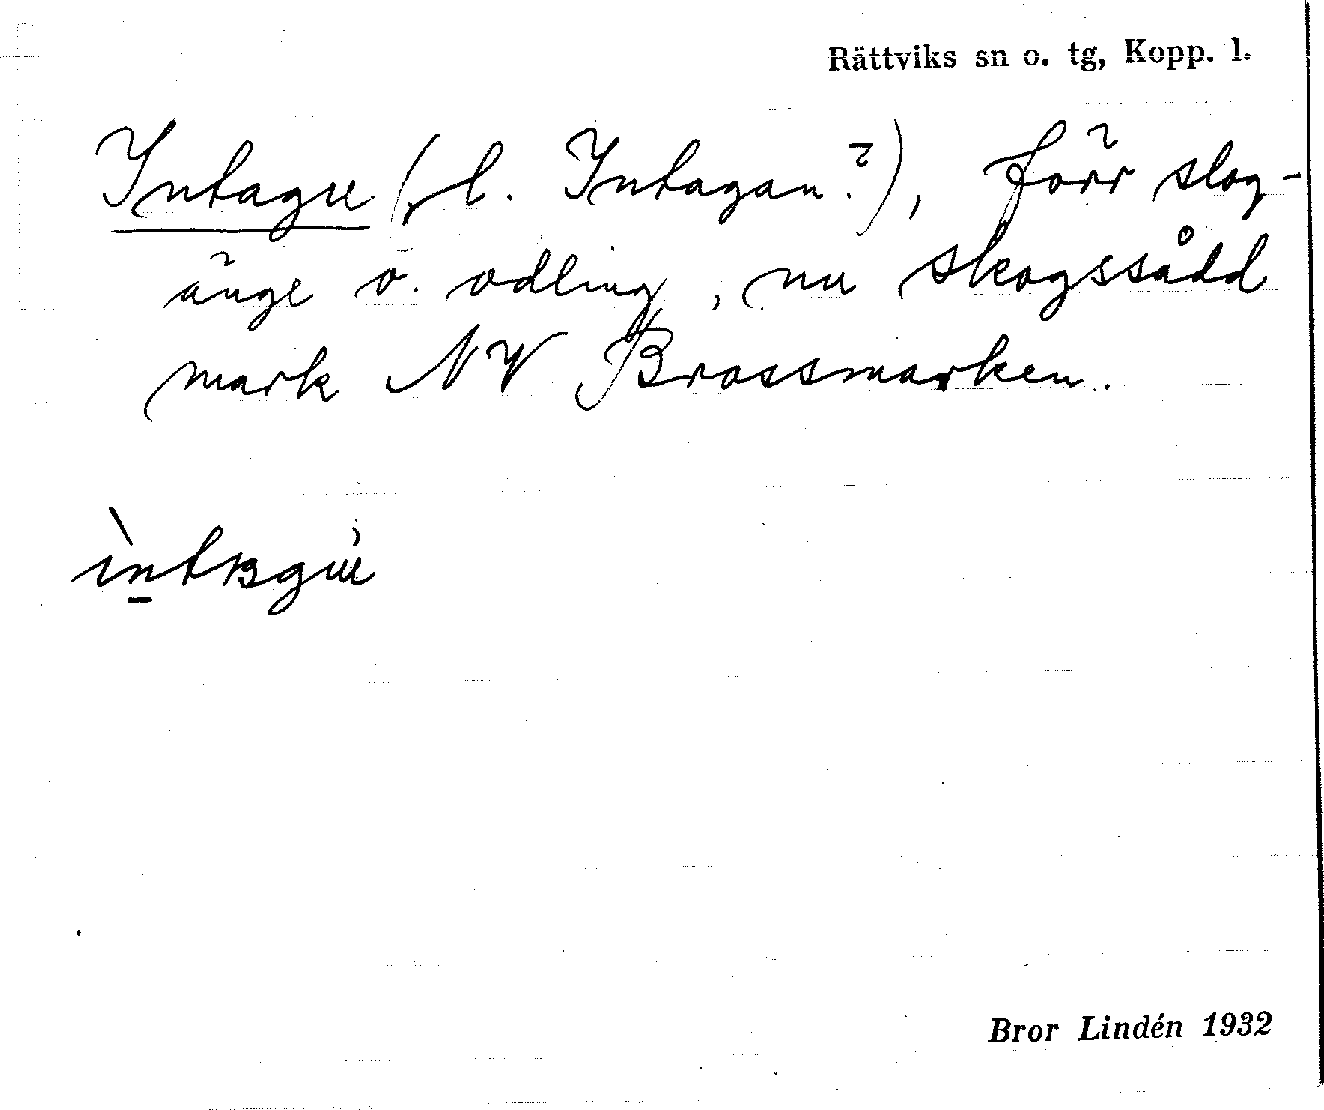 Rättviks sn o. tg, Kopp. l.
Intagu (l. Intagan?), förr slog-
änge o. odling, nu skogssådd
mark NV Brossmarken.
Bror Lindén 1932